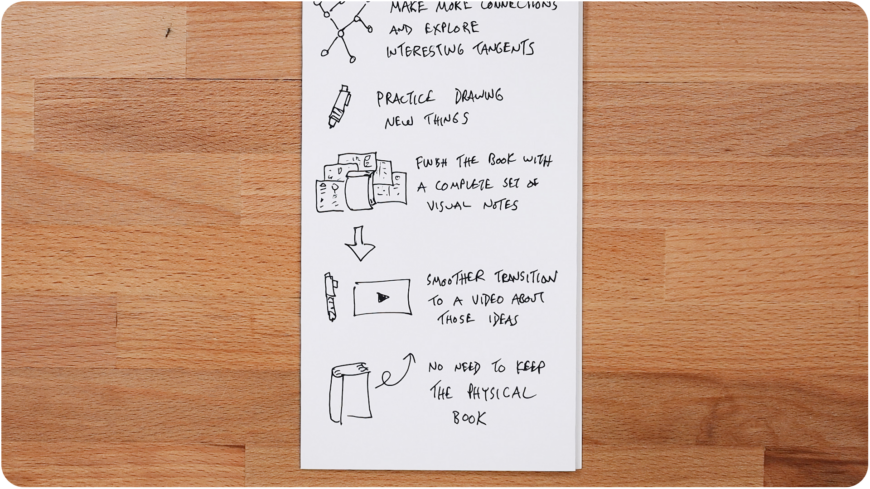 MAKE MORE CONNECTIONS
AND EXPLORE
INTERESTING TANGENTS
PRACTICE DRAWING
NEW THINGS
FINISH THE BOOK WITH
A COMPLETE SET OF
VISUAL NOTES
SMOOTHER TRANSITION
TO A VIDEO ABOUT
THOSE IDEAS
NO NEED TO KEEP
THE PHYSICAL
BOOK